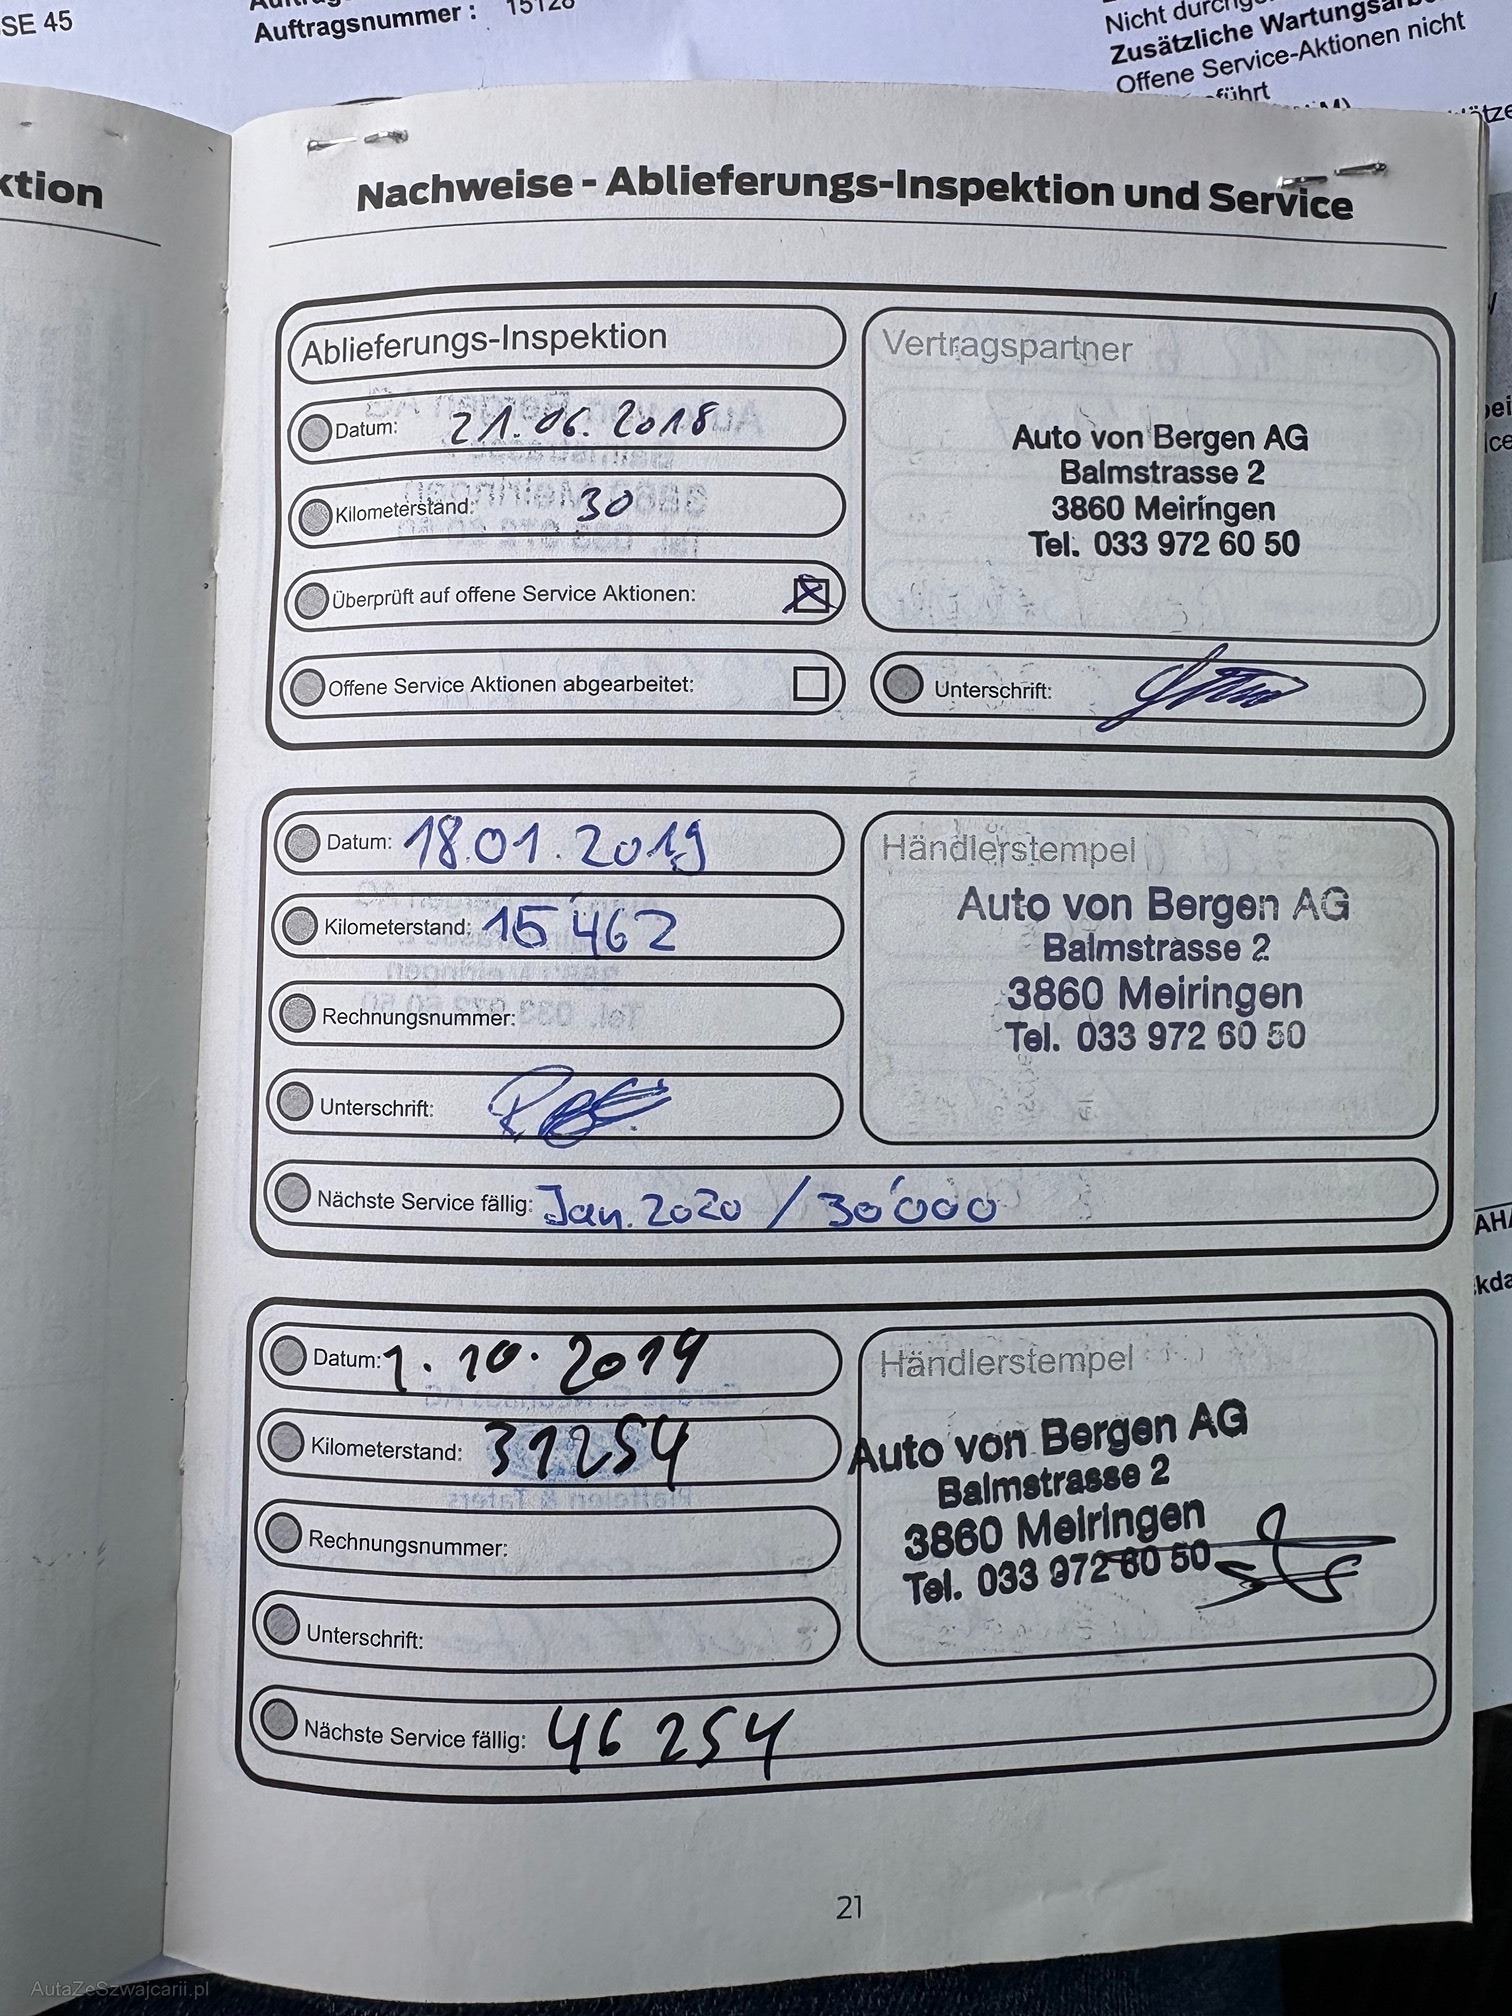 SE 45
Auftragsnummer : 15128
Zusätzliche
Offene Service-Aktionen nicht
ktion
Nachweise - Ablieferungs-Inspektion und Service
Ablieferungs-Inspektion
Datum: 21.06.2018
Kilometerstand: 30
Überprüft auf offene Service Aktionen:
Offene Service Aktionen abgearbeitet:
Vertragspartner
Auto von Bergen AG
Balmstrasse 2
3860 Meiringen
Tel. 033 972 60 50
Unterschrift:
Datum: 18.01.2019
Kilometerstand: 15'462
Rechnungsnummer:
Unterschrift:
Händlerstempel
Auto von Bergen AG
Balmstrasse 2
3860 Meiringen
Tel. 033 972 60 50
Nächste Service fällig: Jan. 2020 / 30'000
Datum: 1.10.2019
Kilometerstand: 31254
Rechnungsnummer:
Unterschrift:
Händlerstempel
Auto von Bergen AG
Balmstrasse 2
3860 Meiringen
Tel. 033 972 60 50
Nächste Service fällig: 46 254
21
AutaZeSzwajcarii.pl